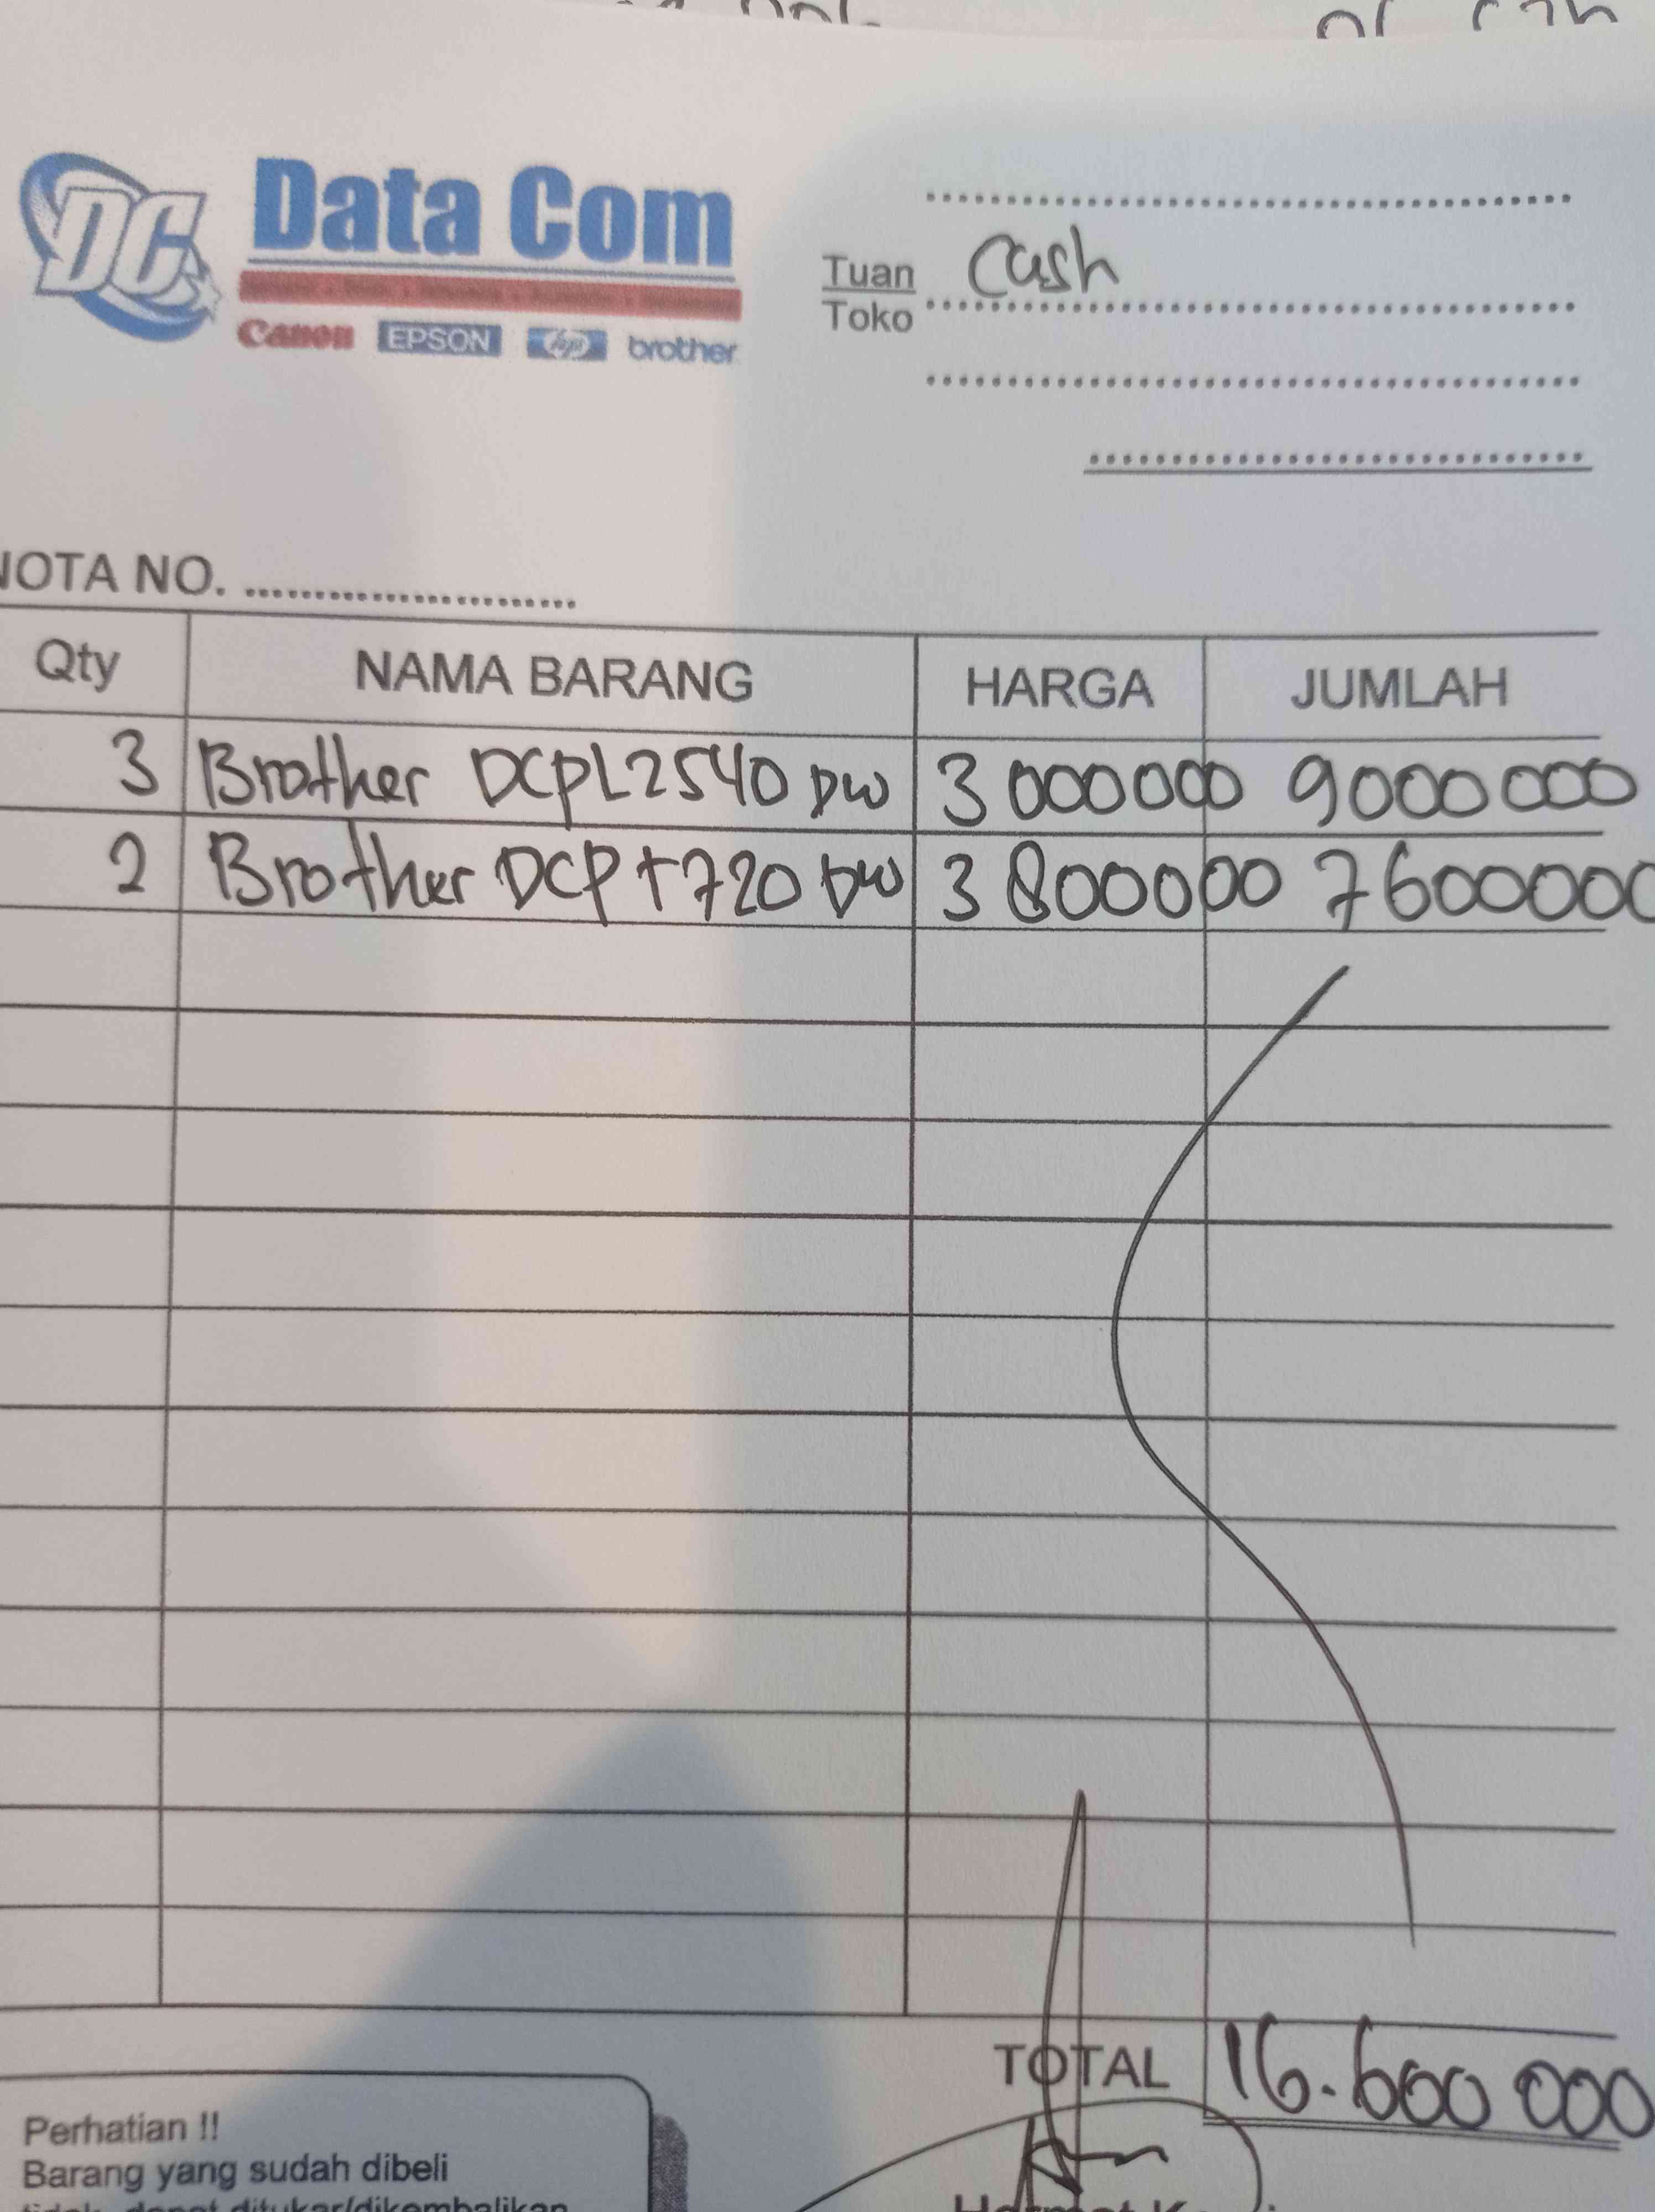 Data Com
Canon EPSON hp brother
Tuan Cash
Toko
NOTA NO. ........................
Qty NAMA BARANG HARGA JUMLAH
3 Brother DCPL2540 DW 3 000000 9000 000
2 Brother DCP T720 DW 3 800000 7600000
TOTAL 16.600 000
Perhatian !!
Barang yang sudah dibeli
tidak dapat ditukar/dikembalikan